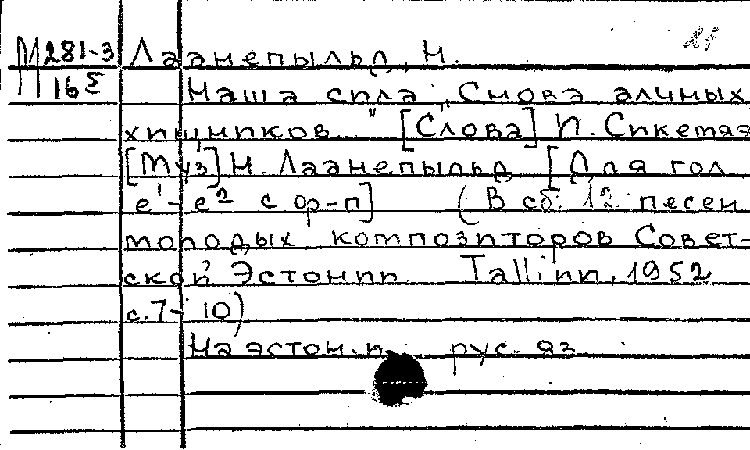 М 281-3 Лаанепыльд, Н.
16 Σ Наша сила „Снова алчных
хищников..." [Слова] И. Сикемяэ
[Муз] Н. Лаанепыльд [Для гол.
e¹-e² с ф-п] (В сб. 12 песен
молодых композиторов Совет-
ской Эстонии. Tallinn, 1952
с. 7-10)
На эстон. и рус. яз.